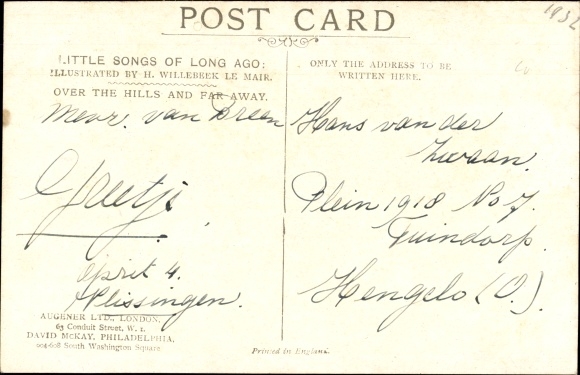 1932
POST CARD
LITTLE SONGS OF LONG AGO:
ILLUSTRATED BY H. WILLEBEEK LE MAIR.
OVER THE HILLS AND FAR AWAY.
ONLY THE ADDRESS TO BE
WRITTEN HERE.
Mevr. van Breen
Greetje
Oprit 4.
Vlissingen.
Hans van der
Zwaan.
Plein 1918 No 7.
Tuindorp.
Hengelo (O.).
AUGENER LTD., LONDON,
63 Conduit Street, W. 1.
DAVID McKAY, PHILADELPHIA,
604-608 South Washington Square
Printed in England.